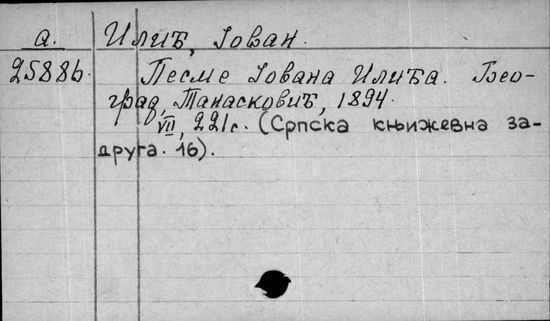 а. Илић, Јован.
25886. Песме Јована Илића. Бео-
град, Танасковић, 1894.
VII, 221с. (Српска књижевна за-
друга. 16).